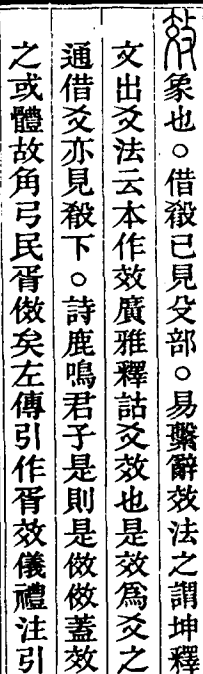 效象也○借殽已見殳部○易繫辭效法之謂坤釋
文出爻法云本作效廣雅釋詁爻效也是效爲爻之
通借爻亦見殽下○詩鹿鳴君子是則是傚傚蓋效
之或體故角弓民胥傚矣左傳引作胥效儀禮注引